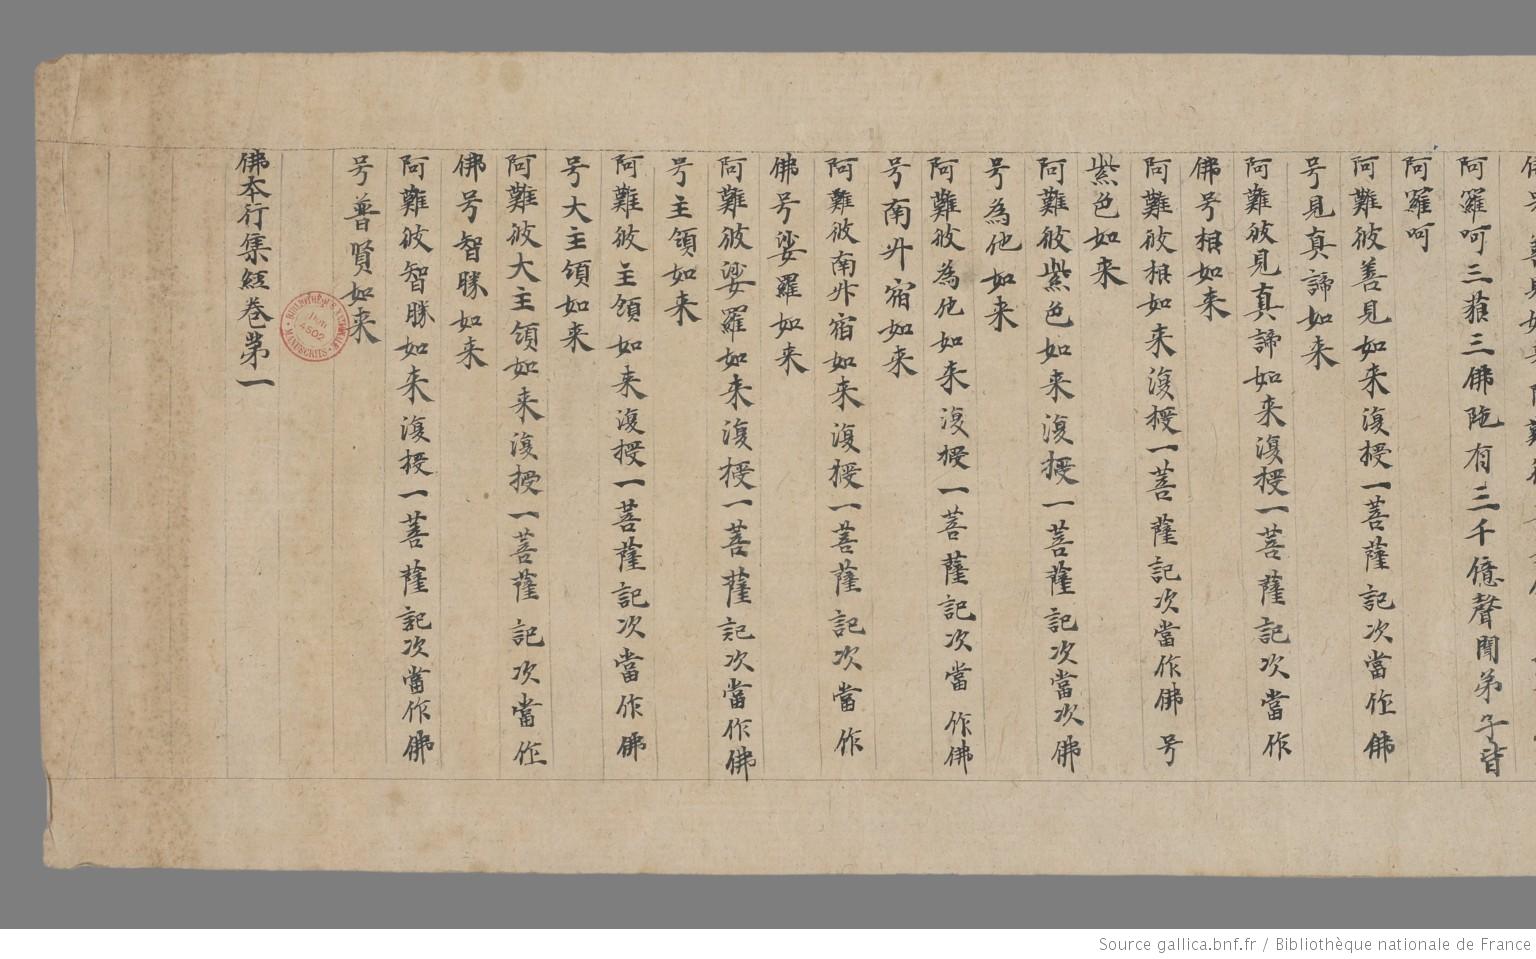 阿羅呵三藐三佛陁有三千億聲聞弟子皆
阿羅呵
阿難彼善見如来復授一菩薩記次當作佛
号見真諦如来
阿難彼見真諦如来復授一菩薩記次當作
佛号相如来
阿難彼相如来復授一菩薩記次當作佛号
紫色如来
阿難彼紫色如来復授一菩薩記次當次佛
号為他如来
阿難彼為他如来復授一菩薩記次當作佛
号南卅宿如来
阿難彼南卅宿如来復授一菩薩記次當作
佛号娑羅如来
阿難彼娑羅如来復授一菩薩記次當作佛
号主領如来
阿難彼主領如来復授一菩薩記次當作佛
号大主領如来
阿難彼大主領如来復授一菩薩記次當作
佛号智勝如来
阿難彼智勝如来復授一菩薩記次當作佛
号普賢如来
佛本行集經卷第一
BIBLIOTHÈQUE NATIONALE
MANUSCRITS
4502
Source gallica.bnf.fr / Bibliothèque nationale de France